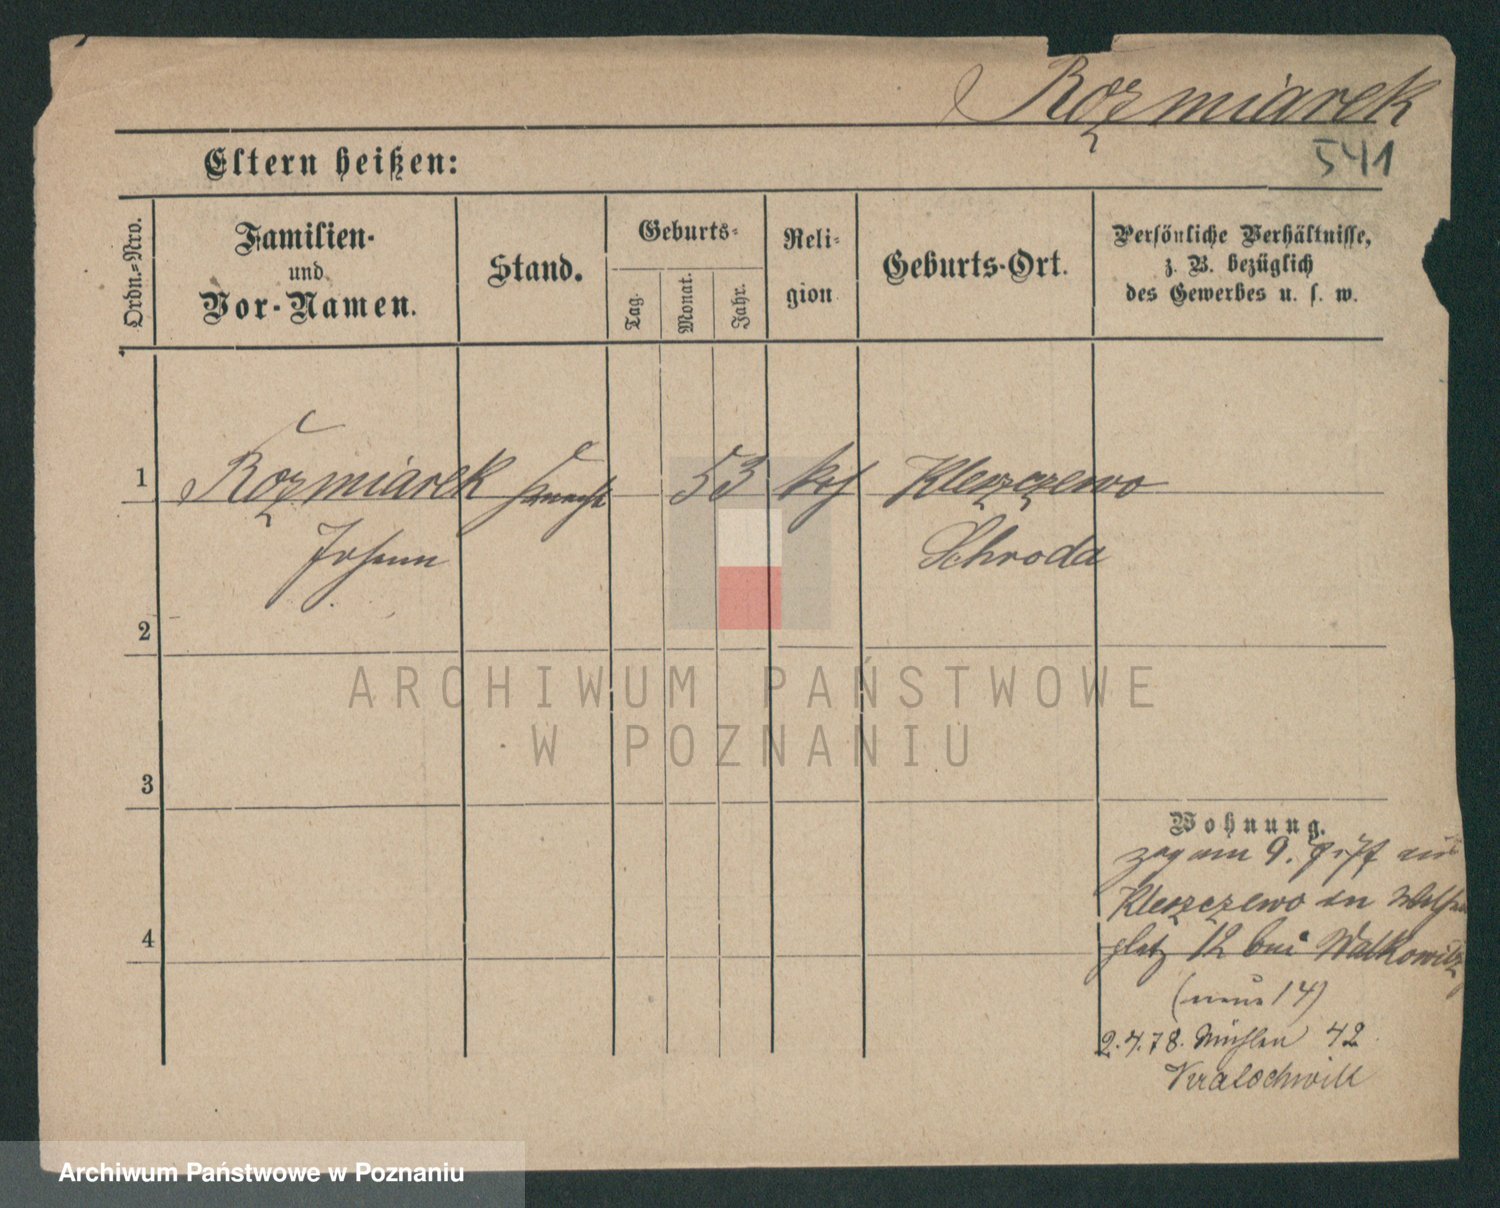 Rozmiarek
541
Eltern heißen:
Ordn.-Nro.
Familien-
und
Vor-Namen.
Stand.
Geburts-
Tag.
Monat.
Jahr.
Reli-
gion
Geburts-Ort.
Persönliche Verhältnisse,
z. B. bezüglich
des Gewerbes u. s. w.
1 Rozmiarek Knecht 53 kth Kleszczewo
Johann Schroda
2
3
4
Wohnung.
zog am 9.
Kleszczewo
platz 12 bei Walkowitz
(neue 14)
2.4.78. Mühlen 42
ARCHIWUM PAŃSTWOWE
W POZNANIU
Archiwum Państwowe w Poznaniu